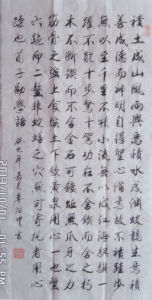 積土成山風雨興焉積水成淵蛟龍生焉積
善成德而神明自得聖心備焉故不積跬步
無以至千里不積小流無以成江海騏驥一
躍不能十步駑馬十駕功在不舍鍥而舍之朽
木不折鍥而不舍金石可鏤蚓無爪牙之利
筋骨之強上食埃土下飲黃泉用心一也蟹
六跪而二螯非蛇蟺之穴無可寄托者用心
躁也 荀子勸學語 癸巳年